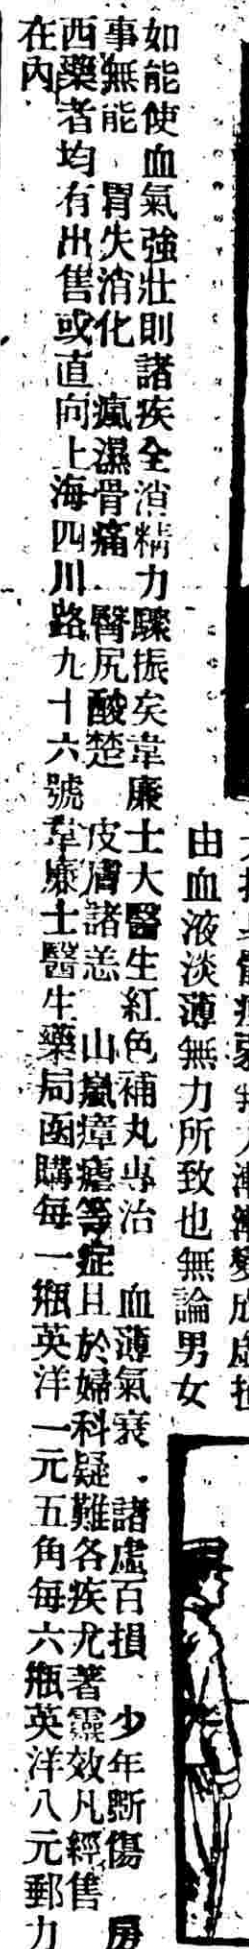 由血液淡薄無力所致也無論男女
如能使血氣強壯則諸疾全消精力驟振矣韋廉士大醫生紅色補丸專治 血薄氣衰 諸虛百損 少年斲傷 房
事無能 胃失消化 瘋濕骨痛 臀尻酸楚 皮膚諸恙 山嵐瘴瘧等症且於婦科疑難各疾尤著靈效凡經售
西藥者均有出售或直向上海四川路九十六號韋廉士醫生藥局函購每一瓶英洋一元五角每六瓶英洋八元郵力
在內